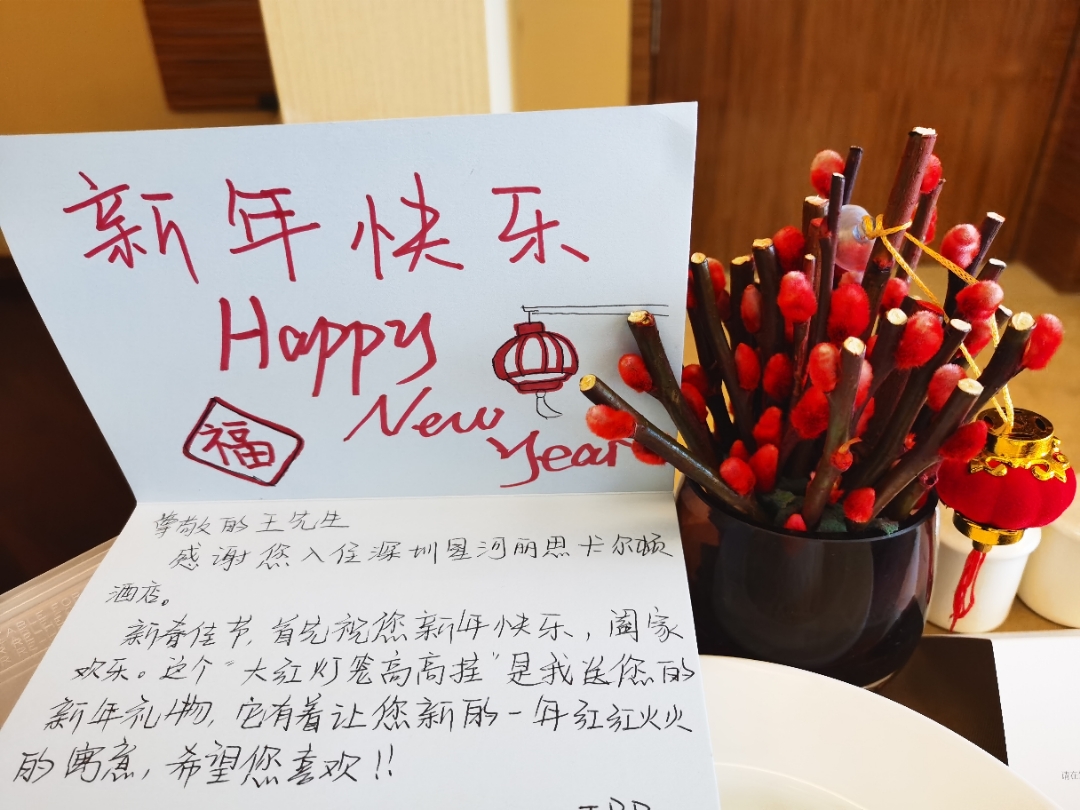 新年快乐
Happy
New
Year
福
尊敬的王先生
感谢您入住深圳星河丽思卡尔顿
酒店。
新春佳节,首先祝您新年快乐,阖家
欢乐。这个“大红灯笼高高挂”是我送您的
新年礼物,它有着让您新的一年红红火火
的寓意,希望您喜欢!!